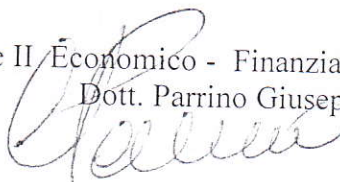 e II Economico - Finanzia
Dott. Parrino Giusep